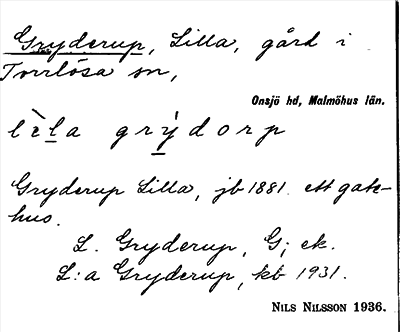 Gryderup, Lilla, gård i
Torrlösa sn,
Onsjö hd, Malmöhus län.
lèla grýdorp
Gryderup Lilla, jb 1881. ett gate-
hus.
L. Gryderup, G; ek.
L:a Gryderup, kb 1931.
NILS NILSSON 1936.